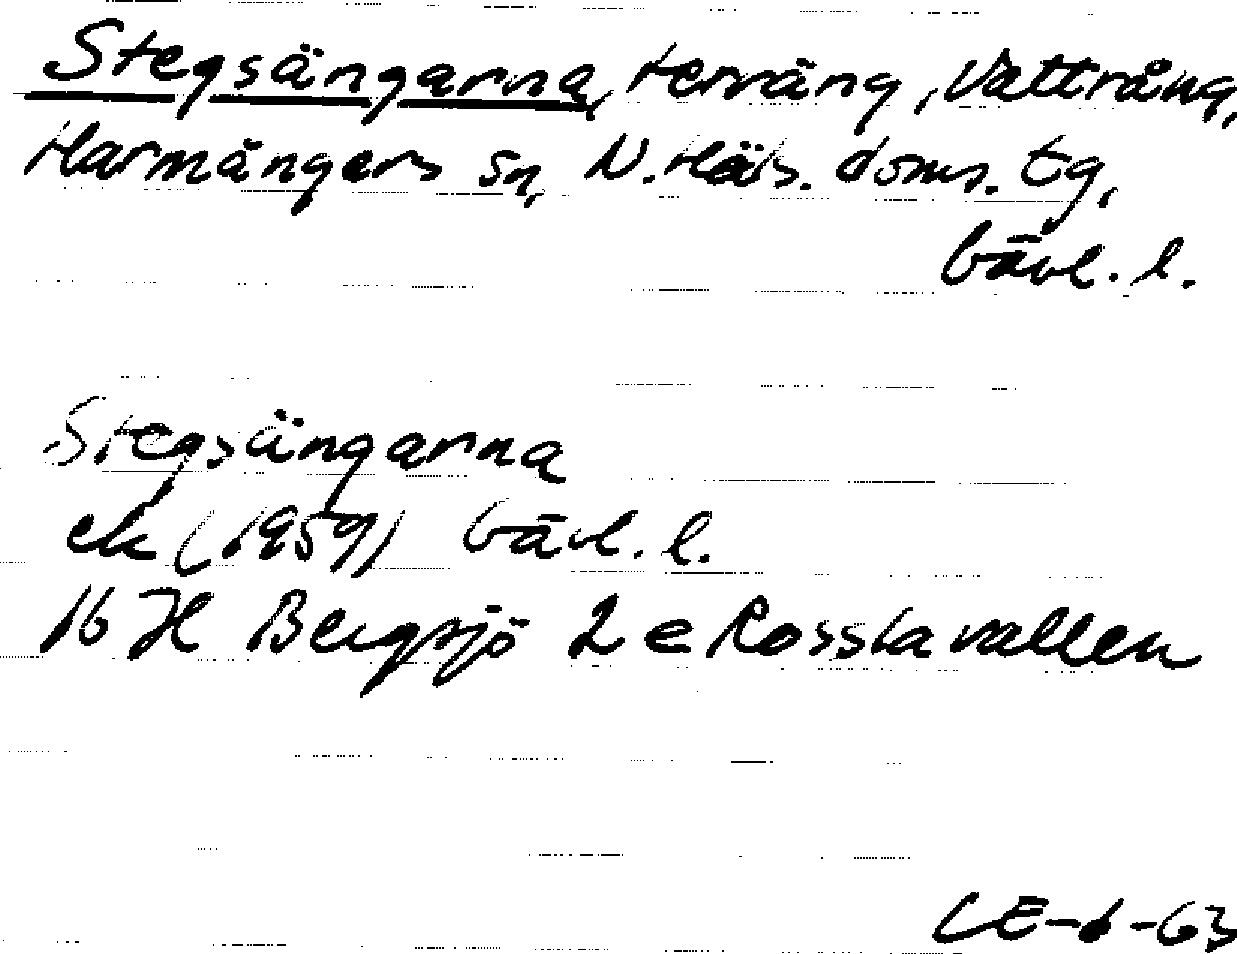 Stegsängarna, terräng, Vattrång,
Harmångers sn, N. Häls. doms. tg,
Gävl. l.
Stegsängarna
ek (1959) Gävl. l.
16 H Bergsjö 2 e Rosslavallen
CE-6-63